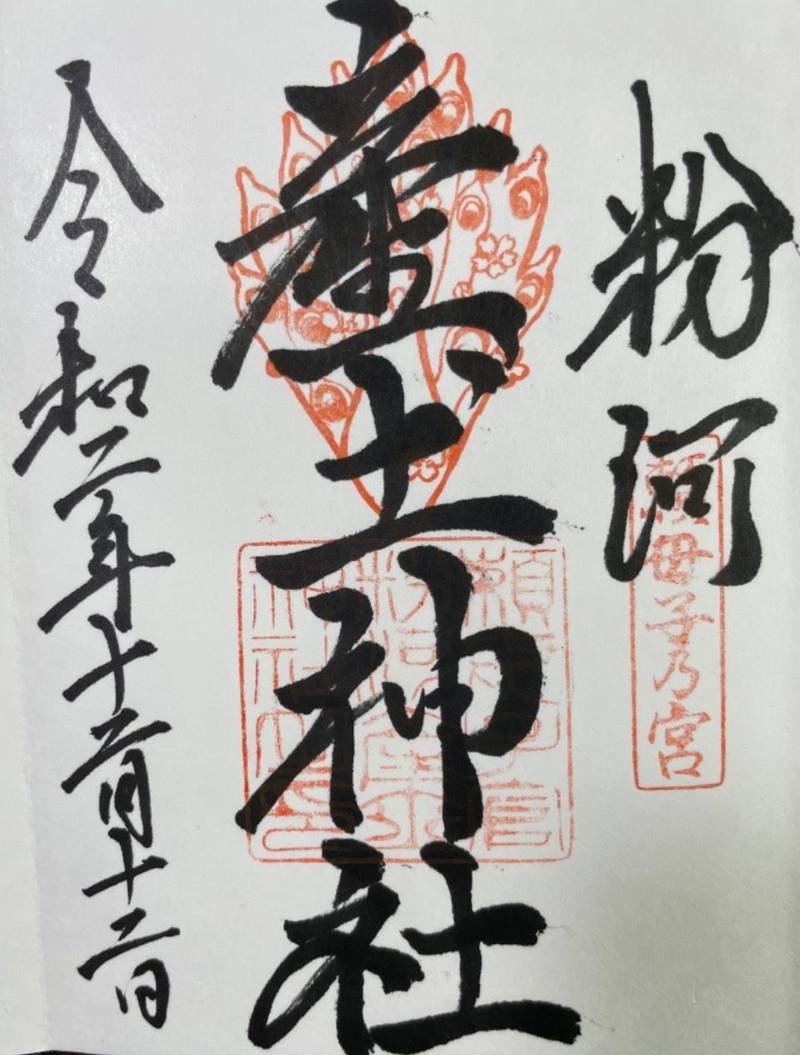 粉河
頼母子乃宮
産土神社
令和二年十二月十二日